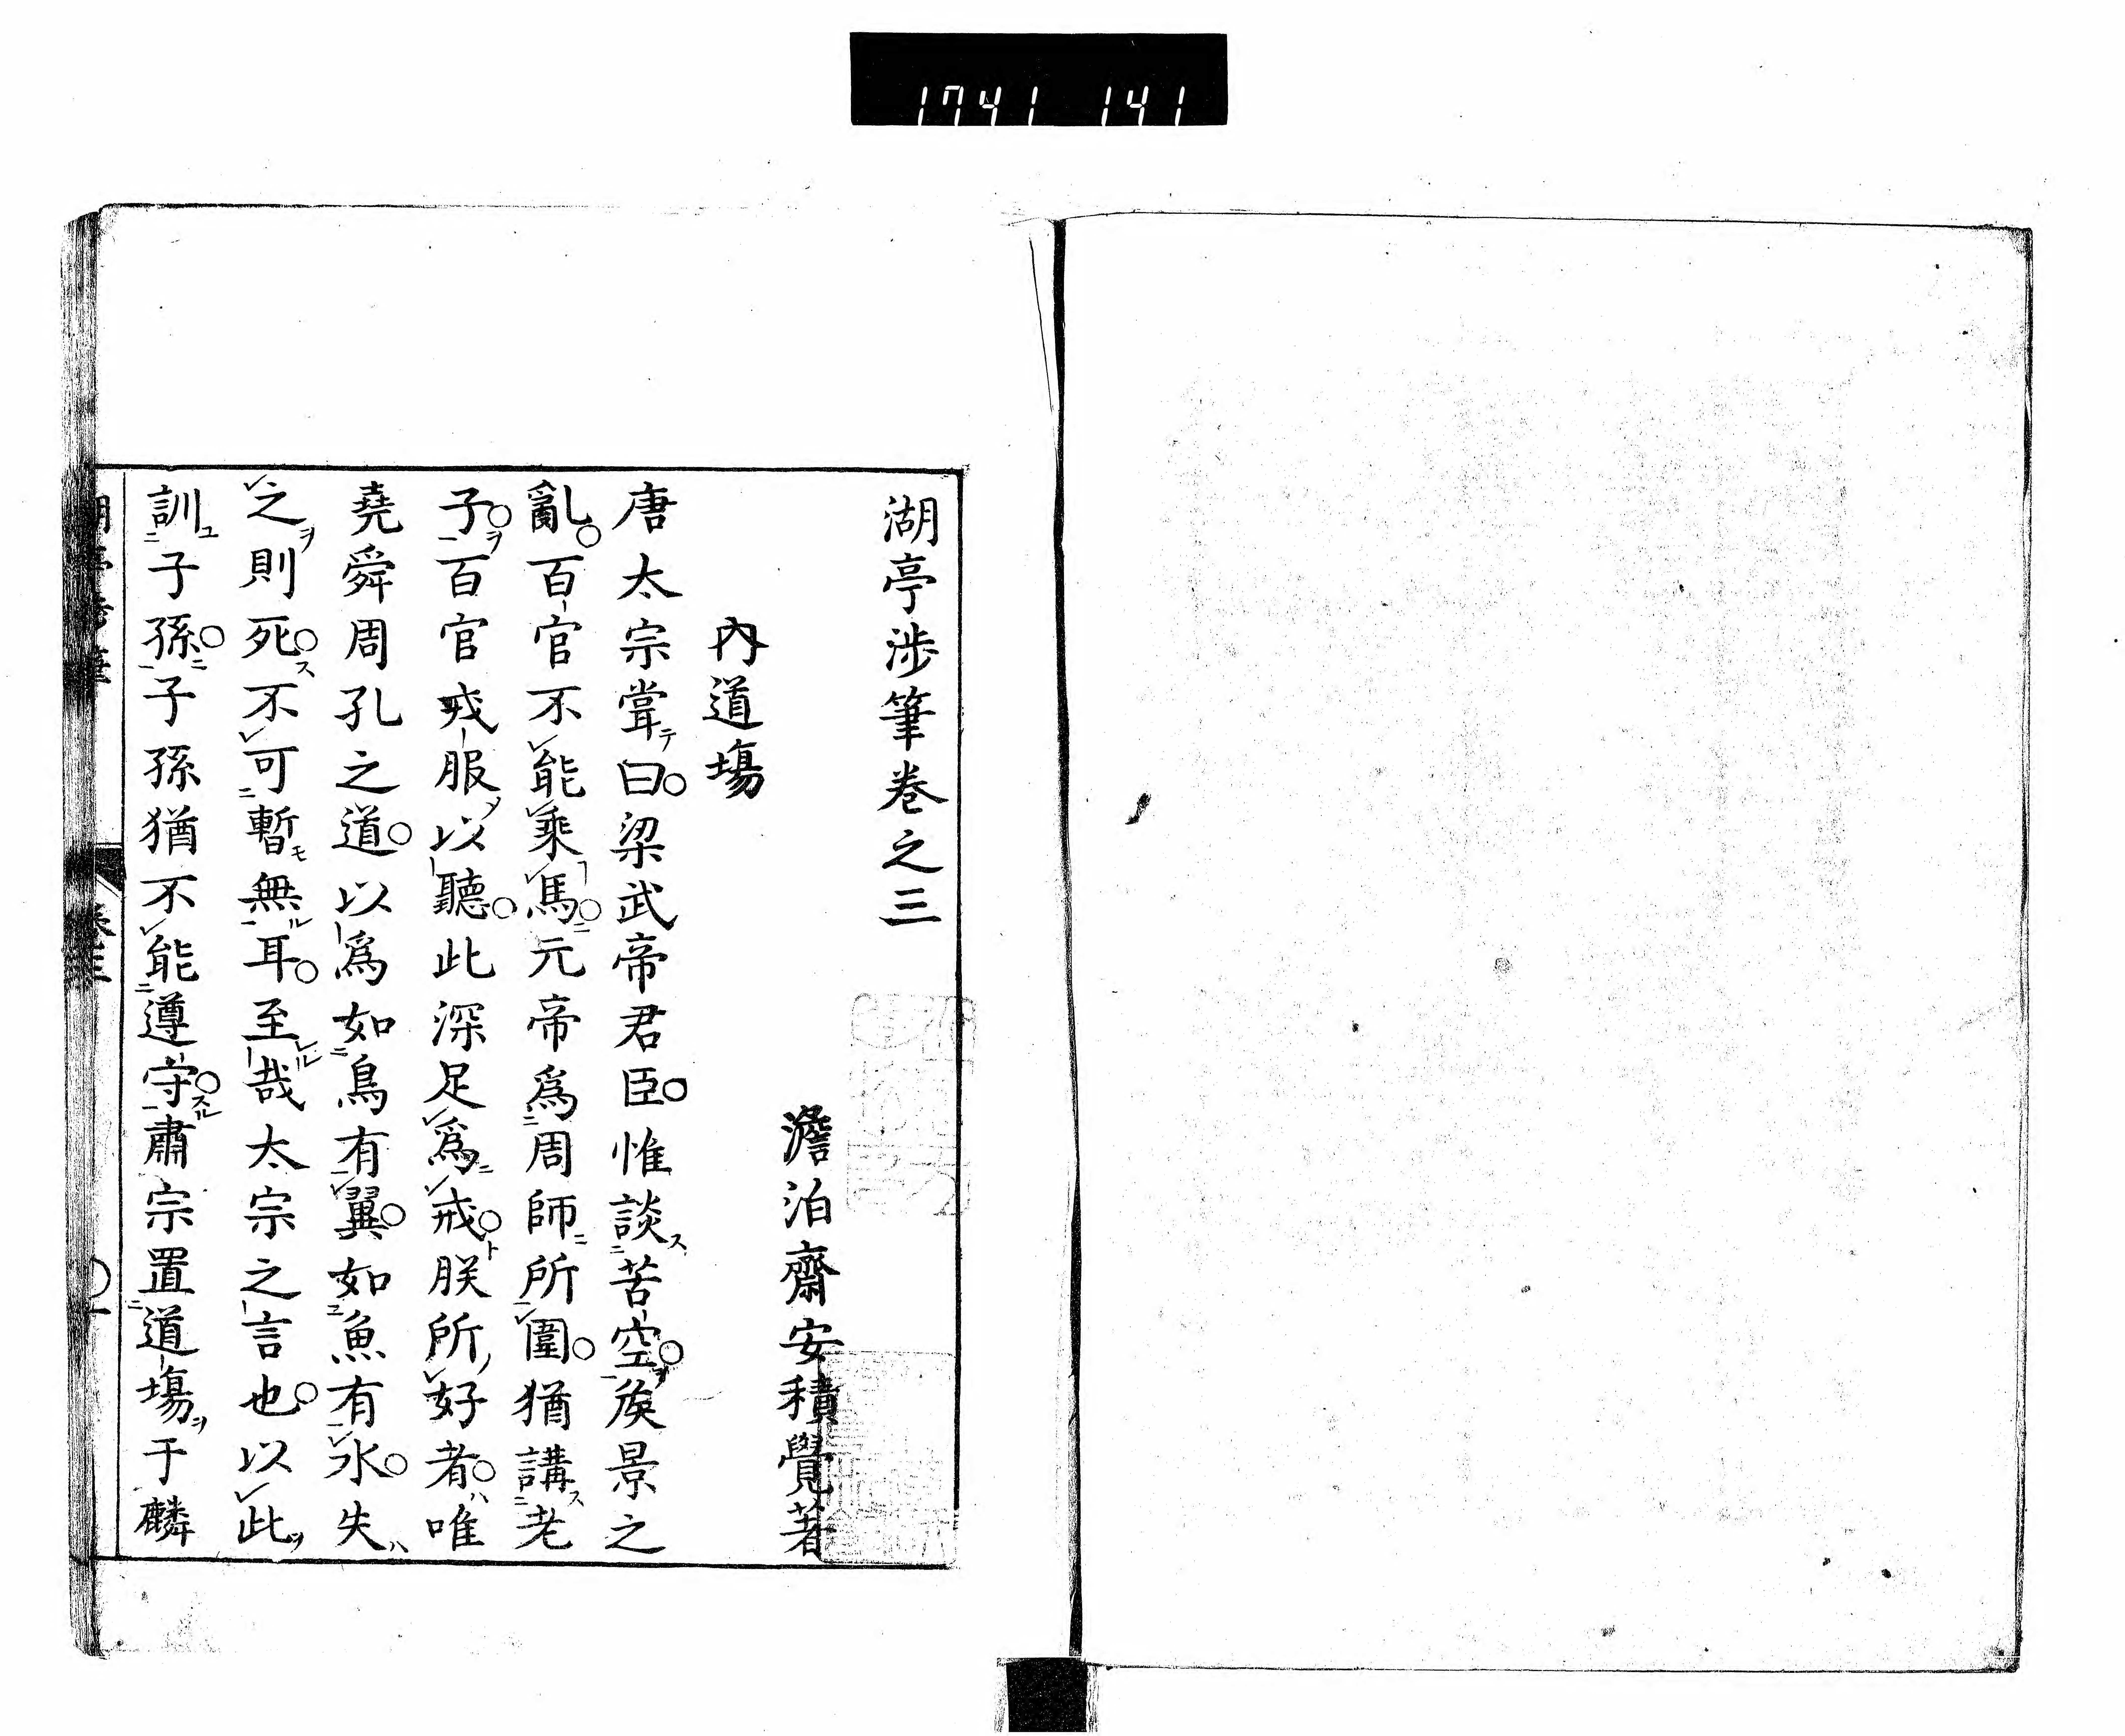 1741 141
湖亭渉筆巻之三
澹泊齋安積覺著
內道場
唐太宗甞テ曰梁武帝君臣惟談ス苦空ヲ矦景之
亂百官不能乘馬ニ元帝爲周師ニ所圍猶講ス老
子ヲ百官戎服ノ以聽此深足爲戒ト朕所ノ好者ハ唯
堯舜周孔之道以爲如鳥有翼如魚有水失ハ
之ヲ則死ス不可暫モ無ル耳至レル哉太宗之言也以此ヲ
訓ユ子孫ニ子孫猶不能遵守スル肅宗置道塲ヲ于麟